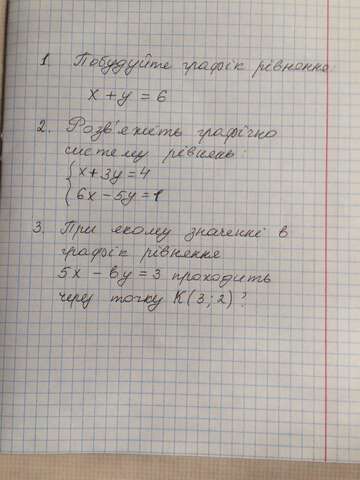 1. Побудуйте графік рівняння:
x + y = 6
2. Розв'яжіть графічно
систему рівнянь:
{x + 3y = 4
{6x - 5y = 1
3. При якому значенні в
графік рівняння
5x - вy = 3 проходить
через точку К(3; 2)?